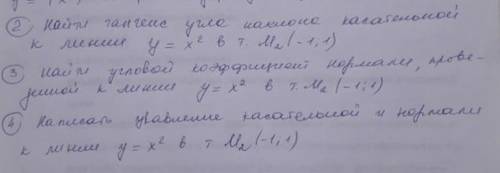 ② Найти тангенс угла наклона касательной
к линии y = x² в т. M₂(-1,1)
③ Найти угловой коэффициент нормали, прове-
денной к линии y = x² в т. M₂(-1;1)
④ Написать уравление касательной и нормали
к линии y = x² в т. M₂(-1,1)